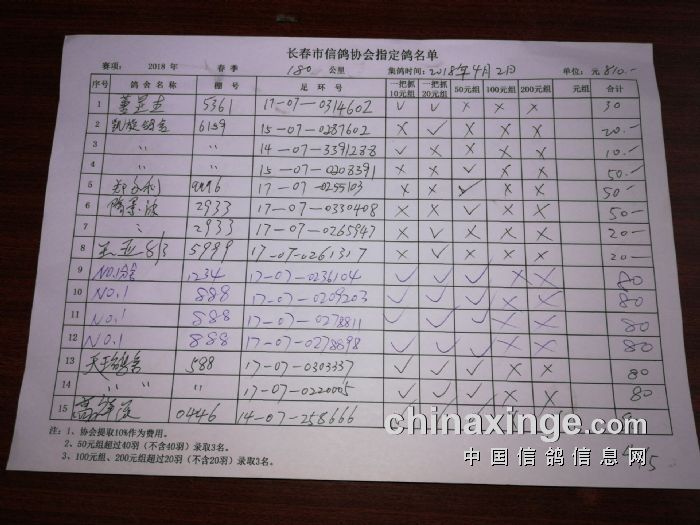 长春市信鸽协会指定鸽名单
赛项: 2018 年 春 季 180 公里 集鸽时间: 2018年4月2日 单位: 元 810.-
序号 鸽舍名称 棚号 足环号 一把抓10元组 一把抓20元组 50元组 100元组 200元组 元组 合计
1 5361 17-07-0314602 ✓ ✓ × × × 30
2 凯旋鸽舍 6159 15-07-0287602 × ✓ × × × 20.-
3 〃 〃 14-07-3391288 ✓ × × × × 10.-
4 〃 〃 15-07-0208391 × × ✓ × × 50.-
5 17-07-0255103 × × ✓ × × 50-
6 2933 17-07-0330408 × × ✓ × × 50-
7 〃 2933 17-07-0265947 × ✓ × × × 20-
8 5989 17-07-0261317 × ✓ × × × 20-
9 NO.1鸽舍 1234 17-07-0236104 ✓ ✓ ✓ × × 80
10 NO.1 888 17-07-0209203 ✓ ✓ ✓ × × 80
11 NO.1 888 17-07-0278811 ✓ ✓ ✓ × × 80
12 NO.1 888 17-07-0278898 ✓ ✓ ✓ × × 80
13 588 17-07-0303337 ✓ ✓ ✓ × × 80
14 〃 〃 〃 17-07-0220005 ✓ ✓ ✓ × × 80
15 0446 14-07-258666
注: 1、协会提取10%作为费用。
2、50元组超过40羽(不含40羽)录取3名。
3、100元组、200元组超过20羽(不含20羽)录取3名。
chinaxinge.com
中国信鸽信息网